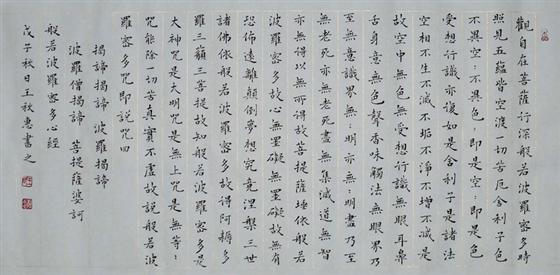 觀自在菩薩行深般若波羅蜜多時
照見五蘊皆空渡一切苦厄舍利子色
不異空:不異色:即是空:即是色
受想行識亦復如是舍利子是諸法
空相不生不滅不垢不淨不增不減是
故空中無色無受想行識無眼耳鼻
舌身意無色聲香味觸法無眼界乃
至無意識界無:明亦無:明盡乃至
無老死亦無老死盡無集滅道無智
亦無得以無所得故菩提薩埵依般若
波羅蜜多故心無罣礙無罣礙故無有
恐怖遠離顛倒夢想究竟涅槃三世
諸佛依般若波羅蜜多故得阿耨多
羅三藐三菩提故知般若波羅蜜多是
大神咒是大明咒是無上咒是無等:
咒能除一切苦真實不虛故說般若波
羅蜜多咒即說咒曰
揭諦揭諦 波羅揭諦
波羅僧揭諦 菩提薩婆訶
般若波羅蜜多心經
戊子秋日王秋惠書之